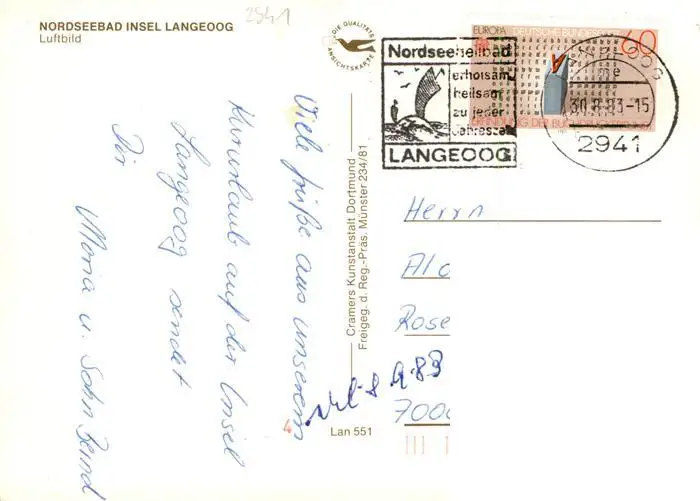 2941
NORDSEEBAD INSEL LANGEOOG
Luftbild
DIE QUALITÄTS
ANSICHTSKARTE
Viele Grüße aus unserem
Kurzurlaub auf der Insel
Langeoog sendet
Dir
Maria u. Sohn Bernd
Cramers Kunstanstalt Dortmund
Freigeg. d. Reg.-Präs. Münster 234/81
Lan 551
4
EUROPA DEUTSCHE BUNDESPOST
60
ERFINDUNG DER
Nordseeheilbad
erholsam
heilsam
zu jeder
Jahreszeit
LANGEOOG
30.8.83-15
2941
Herrn
Alo
Rose
8.9.83
7000